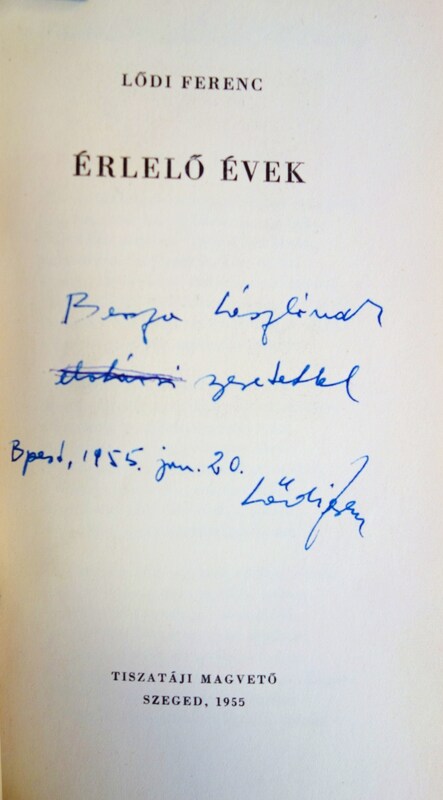 LŐDI FERENC
ÉRLELŐ ÉVEK
Lászlónak
elvtársi szeretettel
Bpest, 1955. jan. 20.
Lődi Ferenc
TISZATÁJI MAGVETŐ
SZEGED, 1955